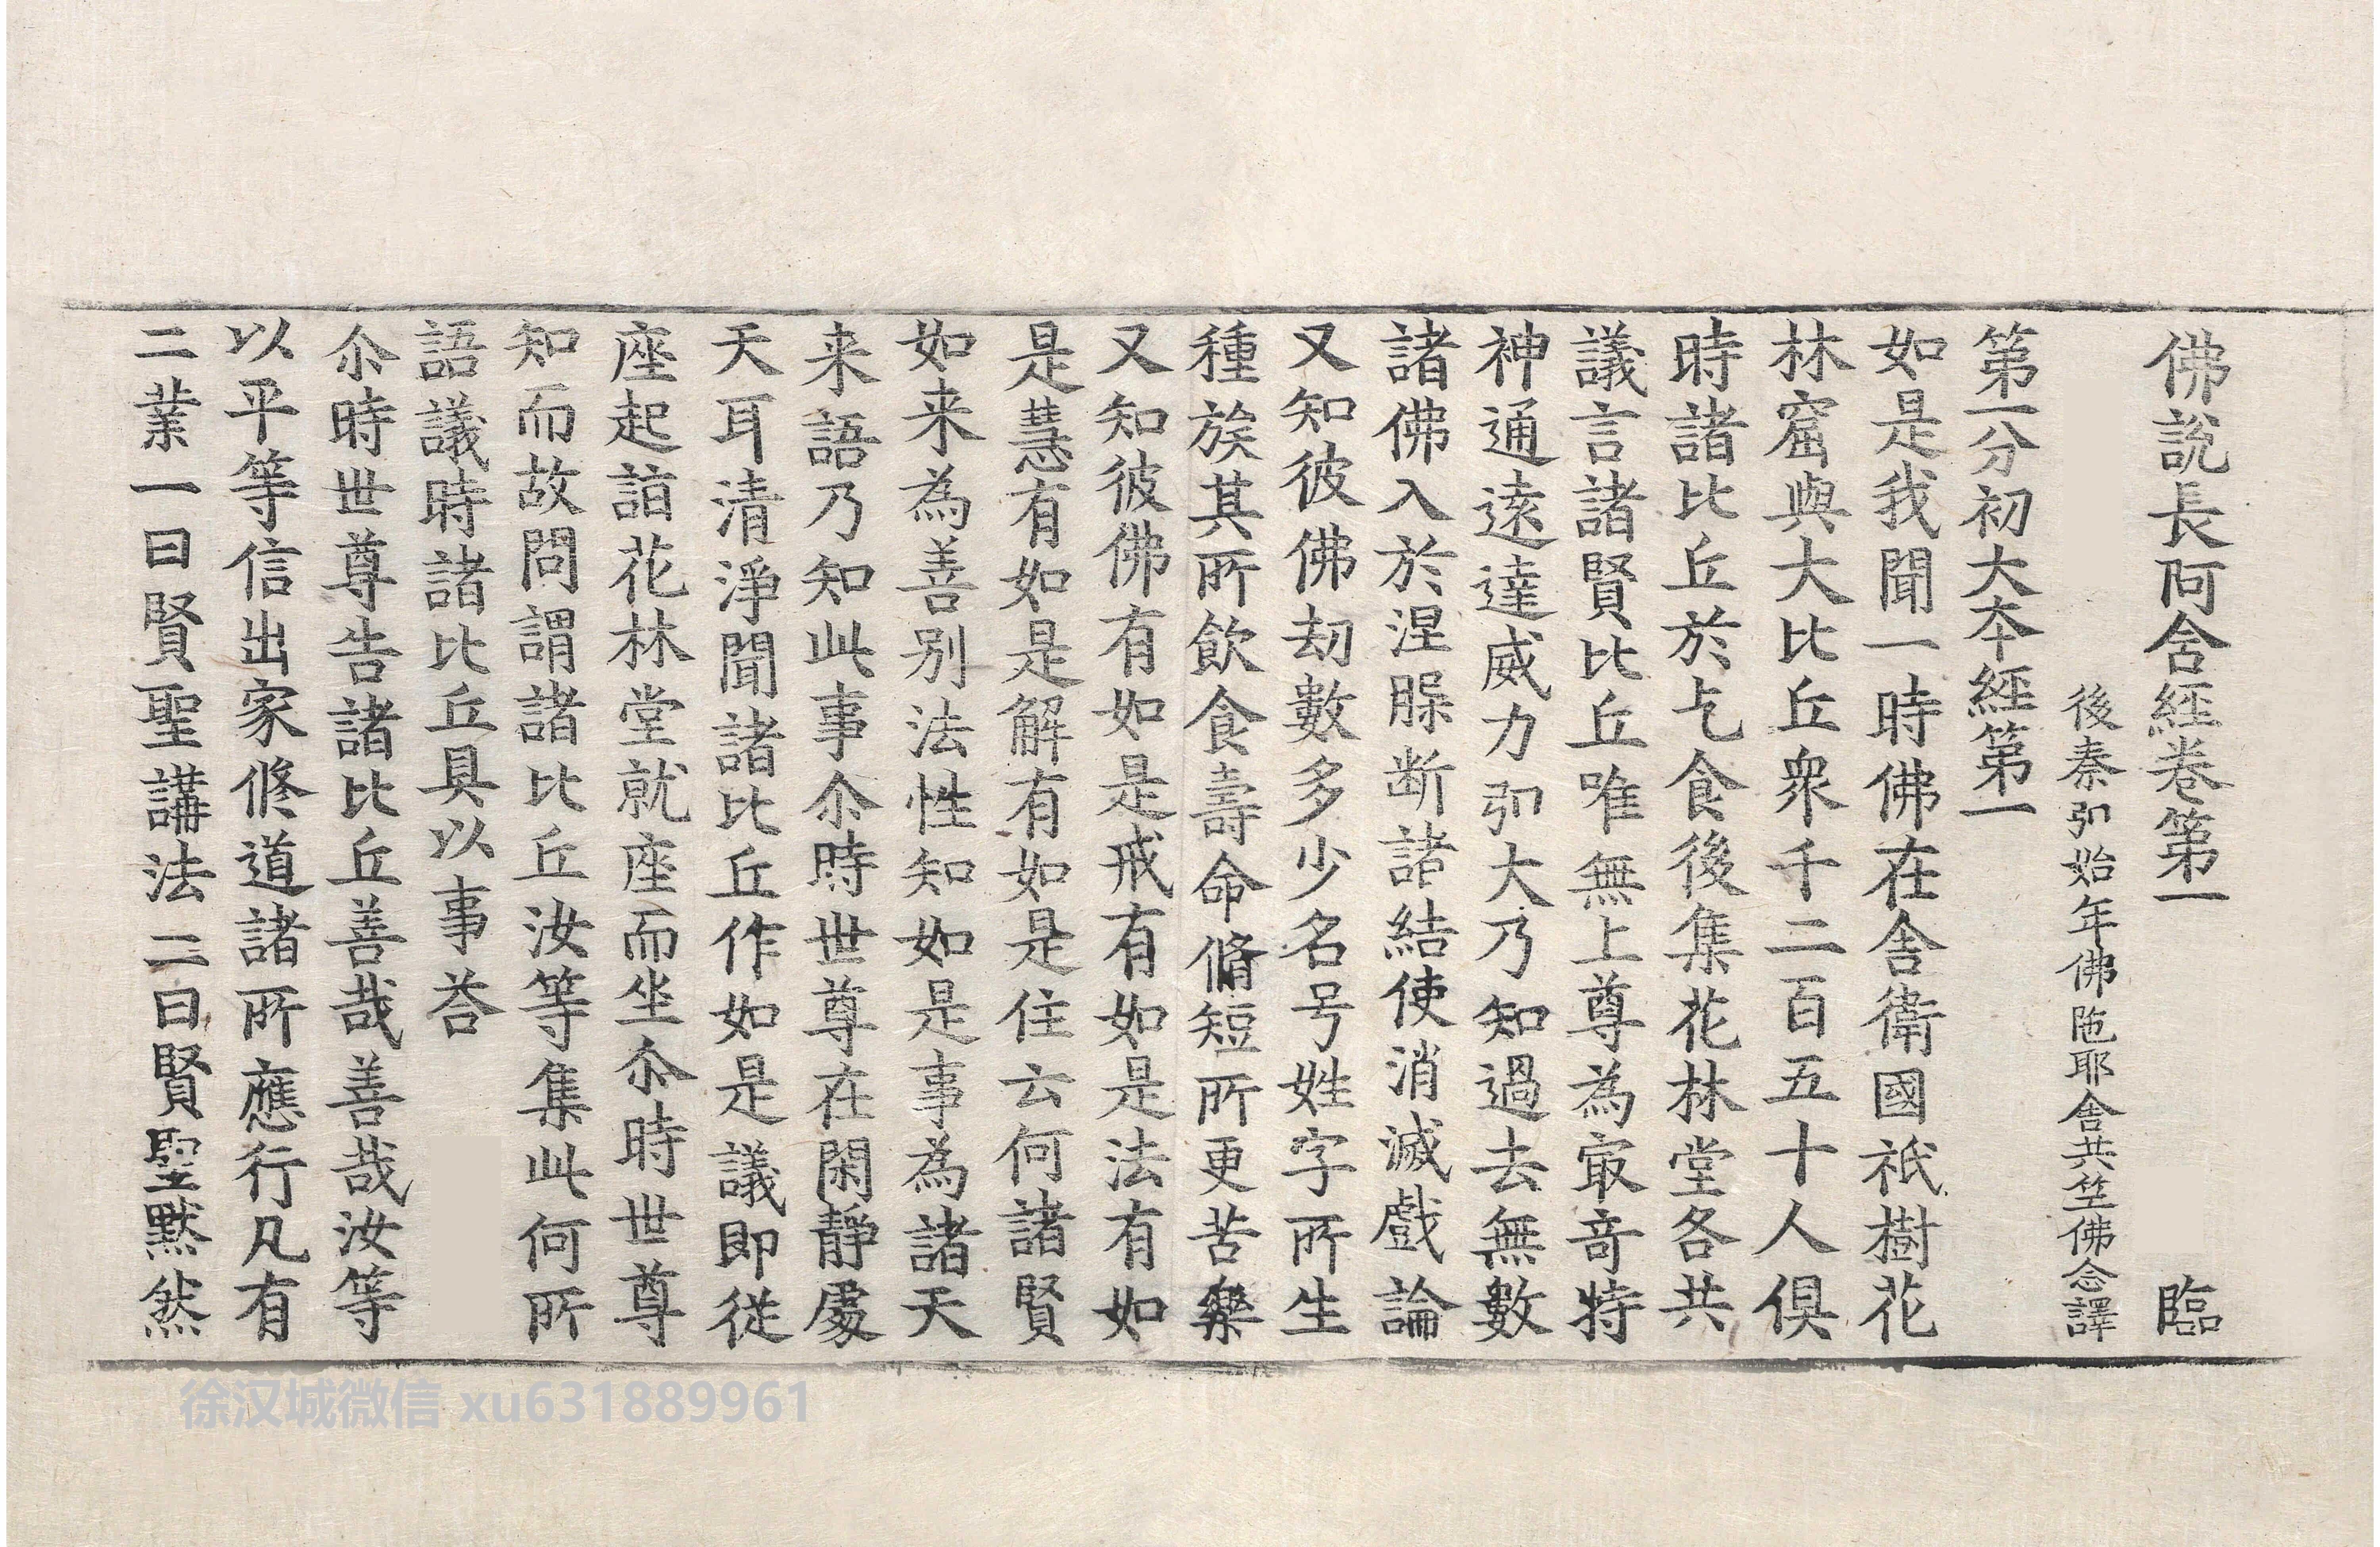 佛説長阿含經卷第一 臨
後秦弘始年佛陁耶舍共笁佛念譯
第一分初大夲經第一
如是我聞一時佛在舍衛國祇樹花
林窟與大比丘衆千二百五十人俱
時諸比丘於乞食後集花林堂各共
議言諸賢比丘唯無上尊為㝡竒特
神通逺達威力弘大乃知過去無數
諸佛入於涅𦘺断諸結使消滅戲論
又知彼佛刧數多少名号姓字所生
種族其所飲食壽命脩短所更苦樂
又知彼佛有如是戒有如是法有如
是慧有如是解有如是住云何諸賢
如来為善别法性知如是事為諸天
来語乃知此事尒時世尊在閑靜處
天耳清淨聞諸比丘作如是議即從
座起詣花林堂就座而坐尒時世尊
知而故問謂諸比丘汝等集此何所
語議時諸比丘具以事荅
尒時世尊告諸比丘善哉善哉汝等
以平等信出家修道諸所應行凡有
二業一曰賢聖講法二曰賢聖黙然
徐汉城微信 xu631889961